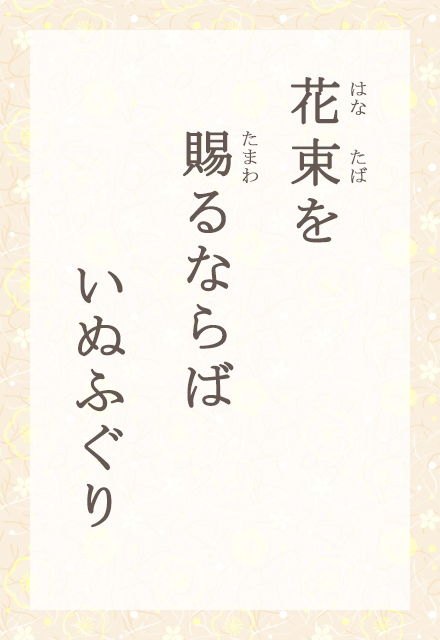 花束を
はな たば
賜るならば
たまわ
いぬふぐり